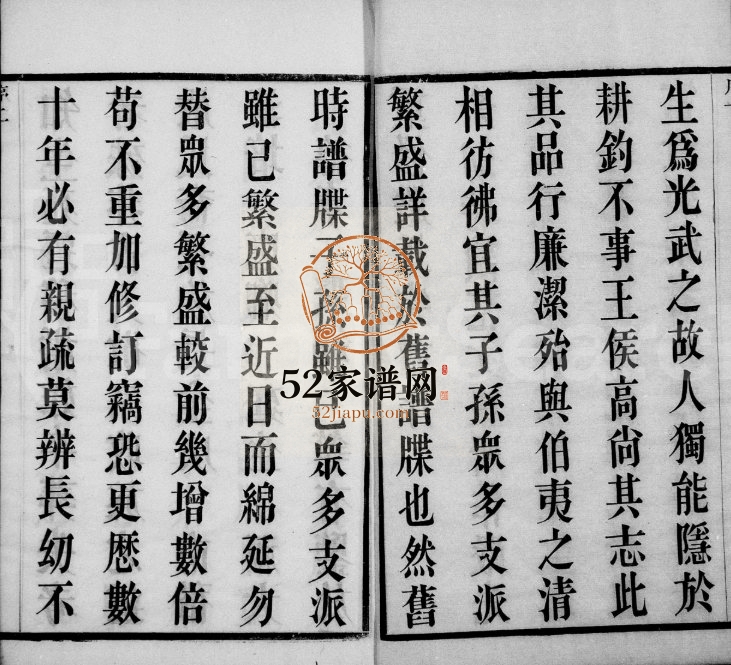 生爲光武之故人獨能隱於
耕釣不事王侯高尙其志此
其品行廉潔殆與伯夷之清
相彷彿宜其子孫眾多支派
繁盛詳載於舊譜牒也然舊
時譜牒子孫雖已眾多支派
雖已繁盛至近日而綿延勿
替眾多繁盛較前幾增數倍
苟不重加修訂竊恐更歷數
十年必有親疏莫辨長幼不
52家谱网
52jiapu.com